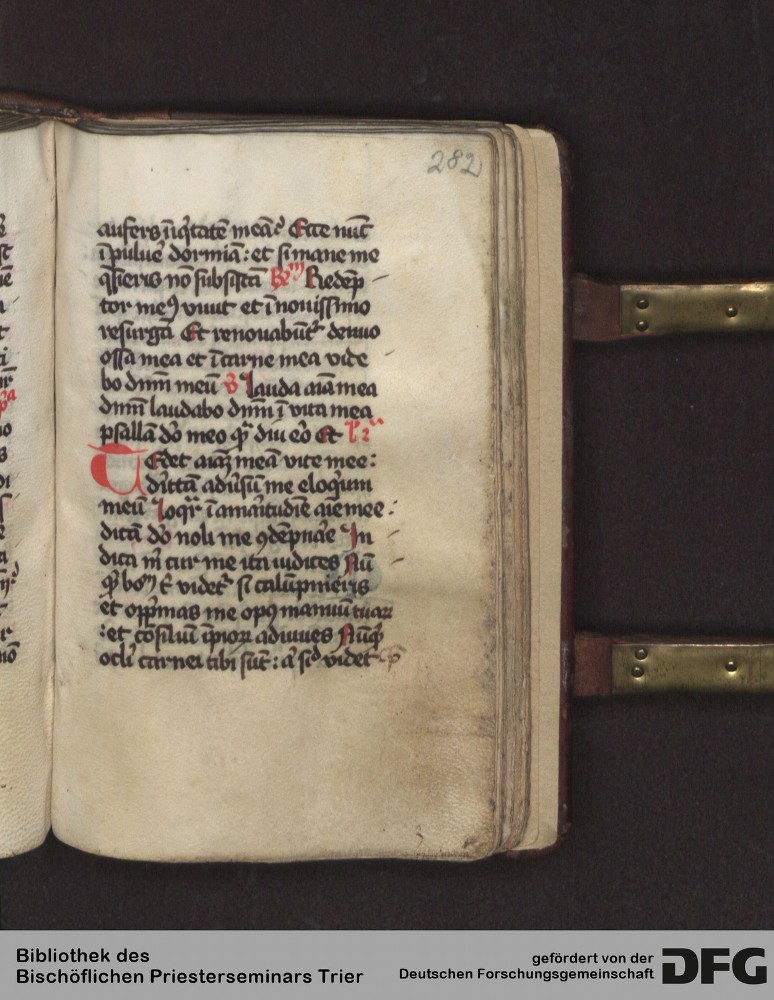 282
aufers īiq̄tatē meā Ecce nūc
ī puluē dormiā : et si mane me
q̄sieris nō subsistā Redēp
tor meꝯ viuit et ī nouissimo
resurgā Et renouabūt̄ denuo
ossa mea et ī carne mea vide
bo dnm̄ meū v̄ lauda aīa mea
dnm̄ laudabo dnm̄ ī vita mea
psallā dō meo q̄ diu eō Et
Tedet aīaȝ meā vite mee :
dīttā adūsū me eloqium
meū loqr̄ ī amaritudīe aīe mee :
dicā dō noli me ꝯdēpnāe In
dica m̄ cur me ita iudices Nū
videt̄ si calūpnieris
et opp̄mas me opꝯ manuū tuaꝝ
: et cōsiliū īpioꝝ adiuues Nūq̄
ocl̄i carnei tibi sūt : videt
Bibliothek des
Bischöflichen Priesterseminars Trier
gefördert von der
Deutschen Forschungsgemeinschaft
DFG